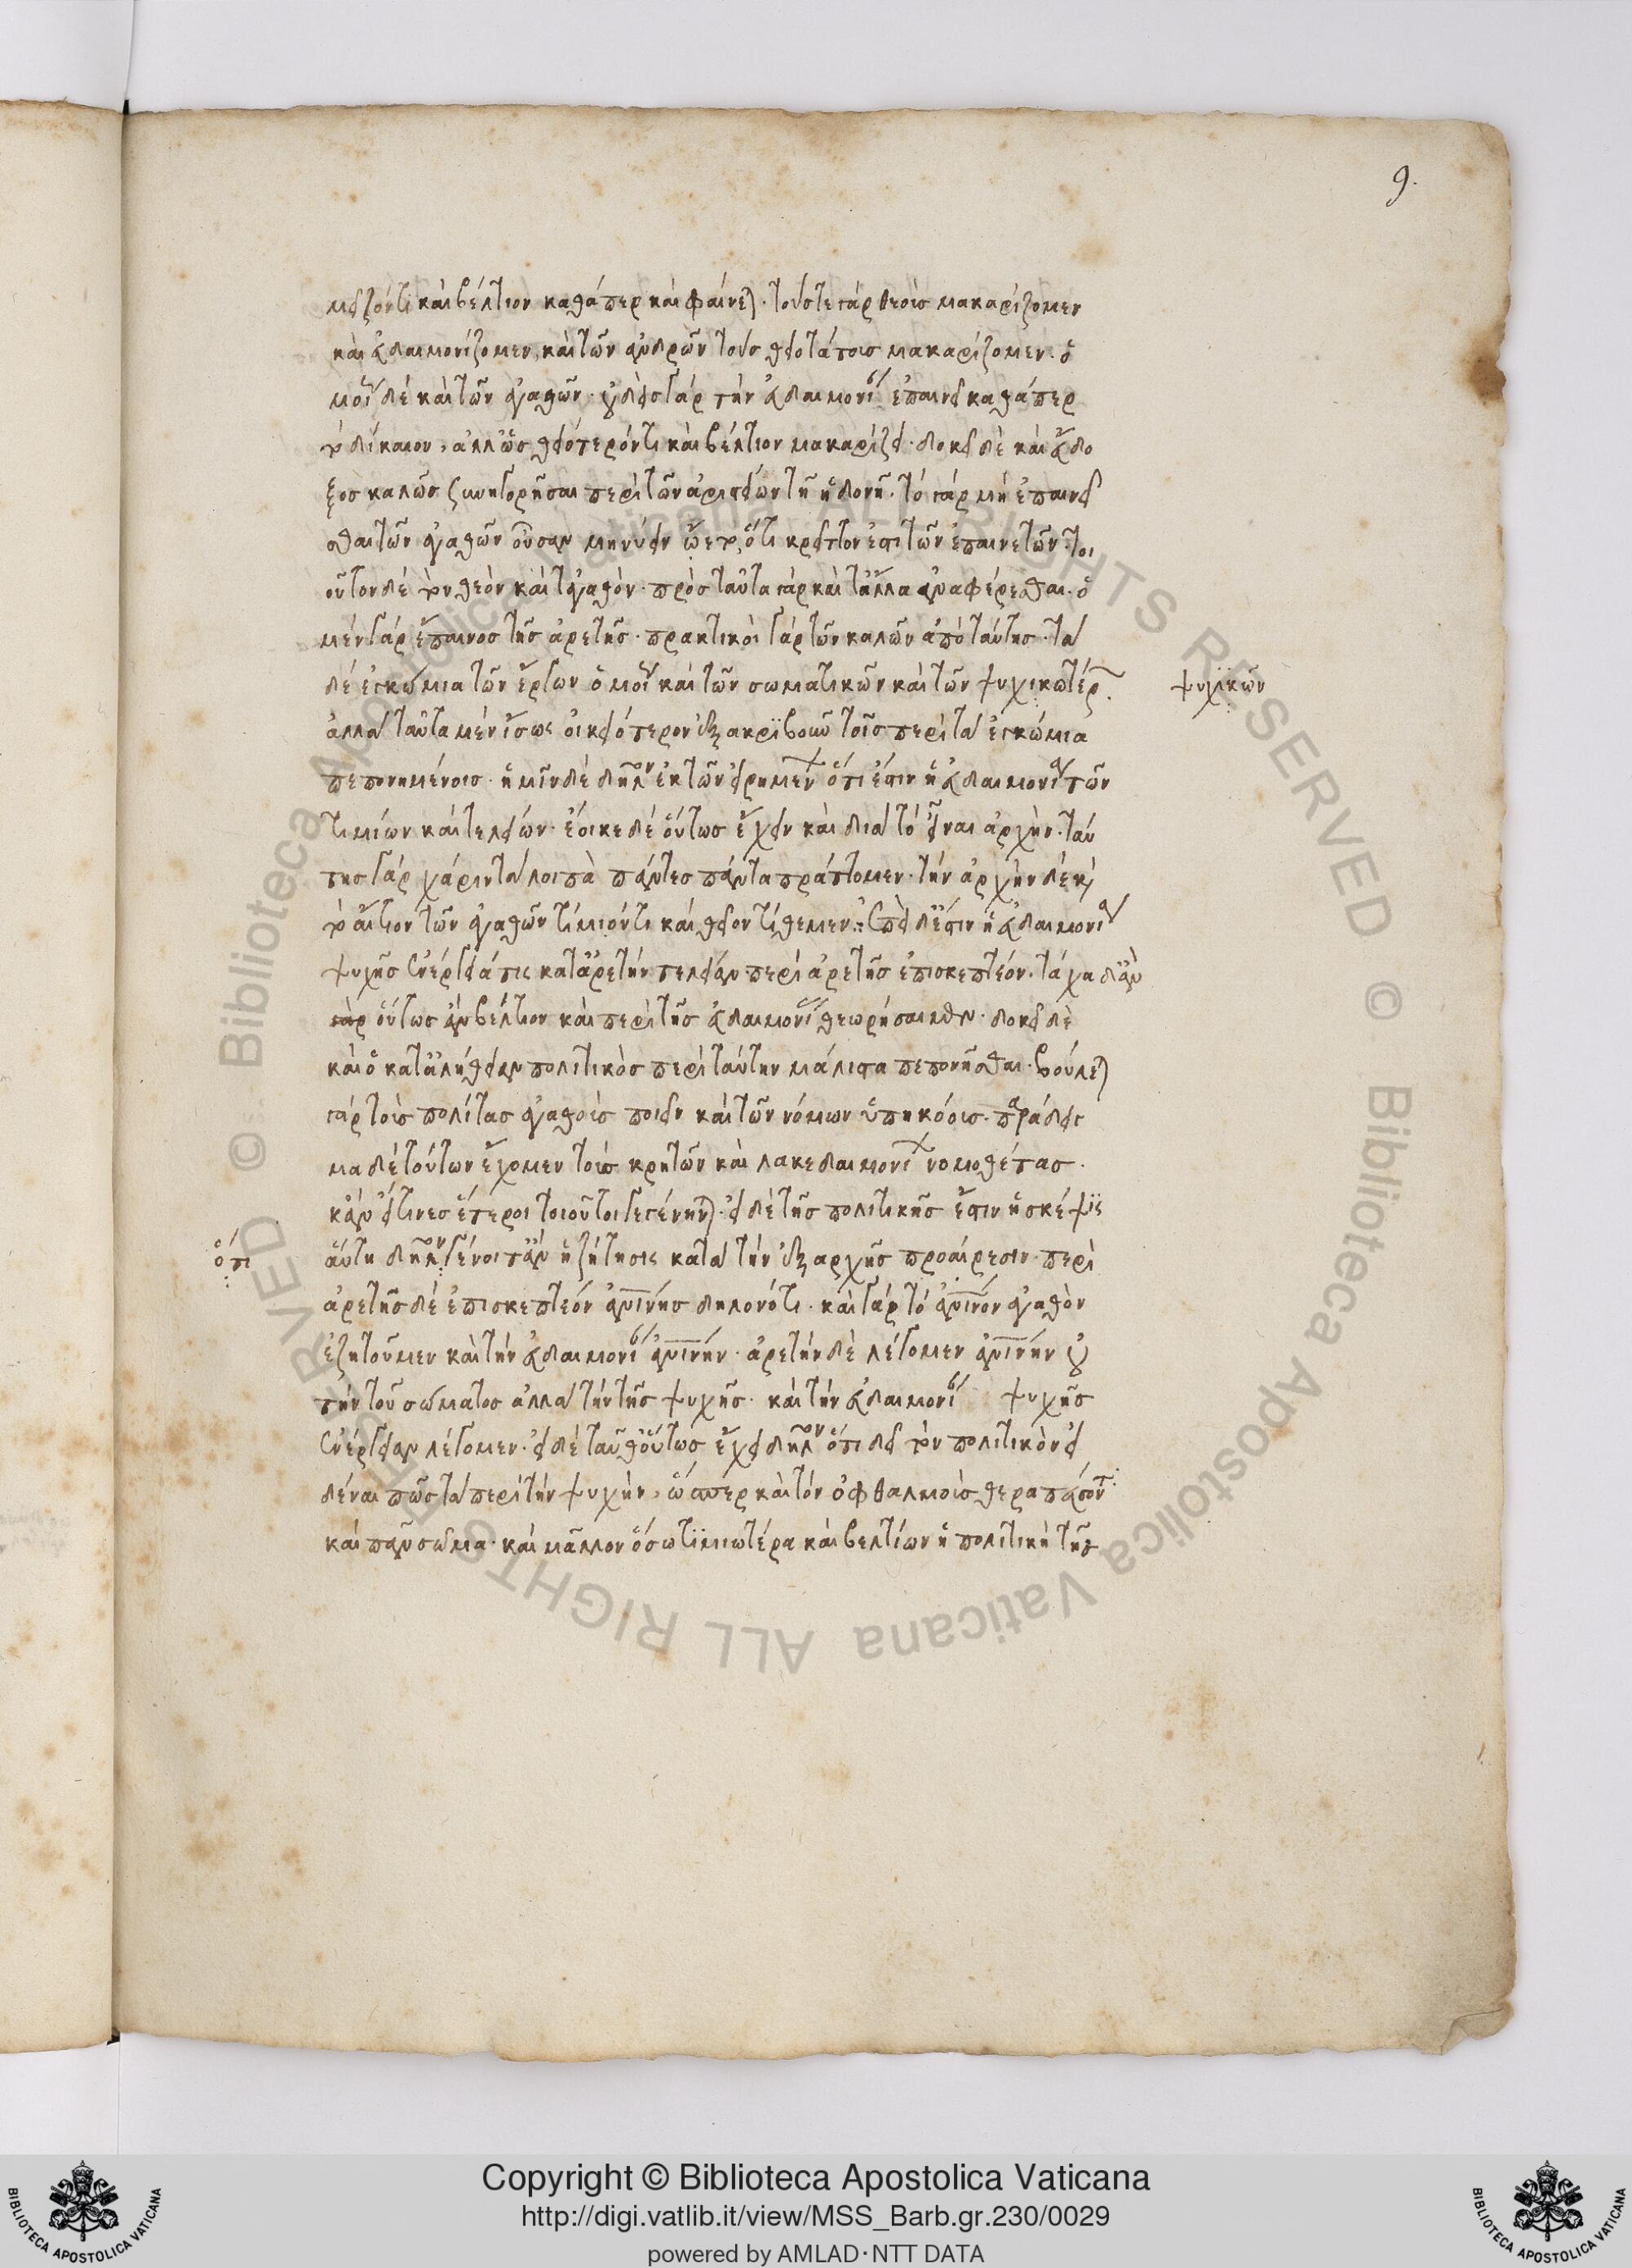 9.
μεῖζόν τι καὶ βέλτιον καθάπερ καὶ φαίνεται. τούς τε γὰρ θεοὺς μακαρίζομεν
καὶ εὐδαιμονίζομεν, καὶ τῶν ἀνδρῶν τοὺς θειοτάτους μακαρίζομεν. ὁ
μοίως δὲ καὶ τῶν ἀγαθῶν. οὐδεὶς γὰρ τὴν εὐδαιμονίαν ἐπαινεῖ καθάπερ
τὸ δίκαιον, ἀλλ' ὡς θειότερόν τι καὶ βέλτιον μακαρίζει. δοκεῖ δὲ καὶ εὔδο
ξος καλῶς συνηγορῆσαι περὶ τῶν ἀριστείων τῇ ἡδονῇ. τὸ γὰρ μὴ ἐπαινεῖ
σθαι τῶν ἀγαθῶν οὖσαν μηνύειν ᾤετο, ὅτι κρεῖττον ἐστὶ τῶν ἐπαινετῶν. τοι
οῦτον δὲ τὸν θεὸν καὶ τἀγαθόν. πρὸς ταῦτα γὰρ καὶ τἆλλα ἀναφέρεσθαι. ὁ
μὲν γὰρ ἔπαινος τῆς ἀρετῆς. πρακτικοὶ γὰρ τῶν καλῶν ἀπὸ ταύτης. τὰ
δὲ ἐγκώμια τῶν ἔργων ὁμοίως καὶ τῶν σωματικῶν καὶ τῶν ψυχικωτέρ.
ψυχικῶν
ἀλλὰ ταῦτα μὲν ἴσως οἰκειότερον ἐξακριβοῦν τοῖς περὶ τὰ ἐγκώμια
πεπονημένοις. ἡμῖν δὲ δῆλον ἐκ τῶν εἰρημένων ὅτι ἐστὶν ἡ εὐδαιμονία τῶν
τιμίων καὶ τελείων. ἔοικε δὲ οὕτως ἔχειν καὶ διὰ τὸ εἶναι ἀρχήν. ταύ
της γὰρ χάριν τὰ λοιπὰ πάντες πάντα πράττομεν. τὴν ἀρχὴν δὲ καὶ
τὸ αἴτιον τῶν ἀγαθῶν τίμιόν τι καὶ θεῖον τίθεμεν. Ἐπεὶ δέ ἐστιν ἡ εὐδαιμονία
ψυχῆς ἐνέργειά τις κατ' ἀρετὴν τελείαν περὶ ἀρετῆς ἐπισκεπτέον. τάχα δ' ἂν
γὰρ οὕτως ἂν βέλτιον καὶ περὶ τῆς εὐδαιμονίας θεωρήσαιμεν. δοκεῖ δὲ
καὶ ὁ κατ' ἀλήθειαν πολιτικὸς περὶ ταύτην μάλιστα πεπονῆσθαι. βούλεται
γὰρ τοὺς πολίτας ἀγαθοὺς ποιεῖν καὶ τῶν νόμων ὑπηκόους. παράδειγ
μα δὲ τούτων ἔχομεν τοὺς κρητῶν καὶ λακεδαιμονίων νομοθέτας.
κἂν εἴ τινες ἕτεροι τοιοῦτοι γεγένηνται. εἰ δὲ τῆς πολιτικῆς ἐστὶν ἡ σκέψις
ὅτι
αὕτη δῆλον γένοιτ' ἂν ἡ ζήτησις κατὰ τὴν ἐξαρχῆς προαίρεσιν. περὶ
ἀρετῆς δὲ ἐπισκεπτέον ἀνθρωπίνης δηλονότι. καὶ γὰρ τὸ ἀνθρώπινον ἀγαθὸν
ἐζητοῦμεν καὶ τὴν εὐδαιμονίαν ἀνθρωπίνην. ἀρετὴν δὲ λέγομεν ἀνθρωπίνην οὐ
τὴν τοῦ σώματος ἀλλὰ τὴν τῆς ψυχῆς. καὶ τὴν εὐδαιμονίαν ψυχῆς
ἐνέργειαν λέγομεν. εἰ δὲ ταῦθ' οὕτως ἔχει δῆλον ὅτι δεῖ τὸν πολιτικὸν εἰ
δέναι πῶς τὰ περὶ τὴν ψυχὴν, ὥσπερ καὶ τὸν ὀφθαλμοὺς θεραπεύσοντα
καὶ πᾶν σῶμα. καὶ μᾶλλον ὅσῳ τιμιωτέρα καὶ βελτίων ἡ πολιτικὴ τῆς
Copyright © Biblioteca Apostolica Vaticana
http://digi.vatlib.it/view/MSS_Barb.gr.230/0029
powered by AMLAD·NTT DATA
BIBLIOTECA APOSTOLICA VATICANA
BIBLIOTECA APOSTOLICA VATICANA
© Biblioteca Apostolica Vaticana ALL RIGHTS RESERVED © Biblioteca Apostolica Vaticana ALL RIGHTS RESERVED